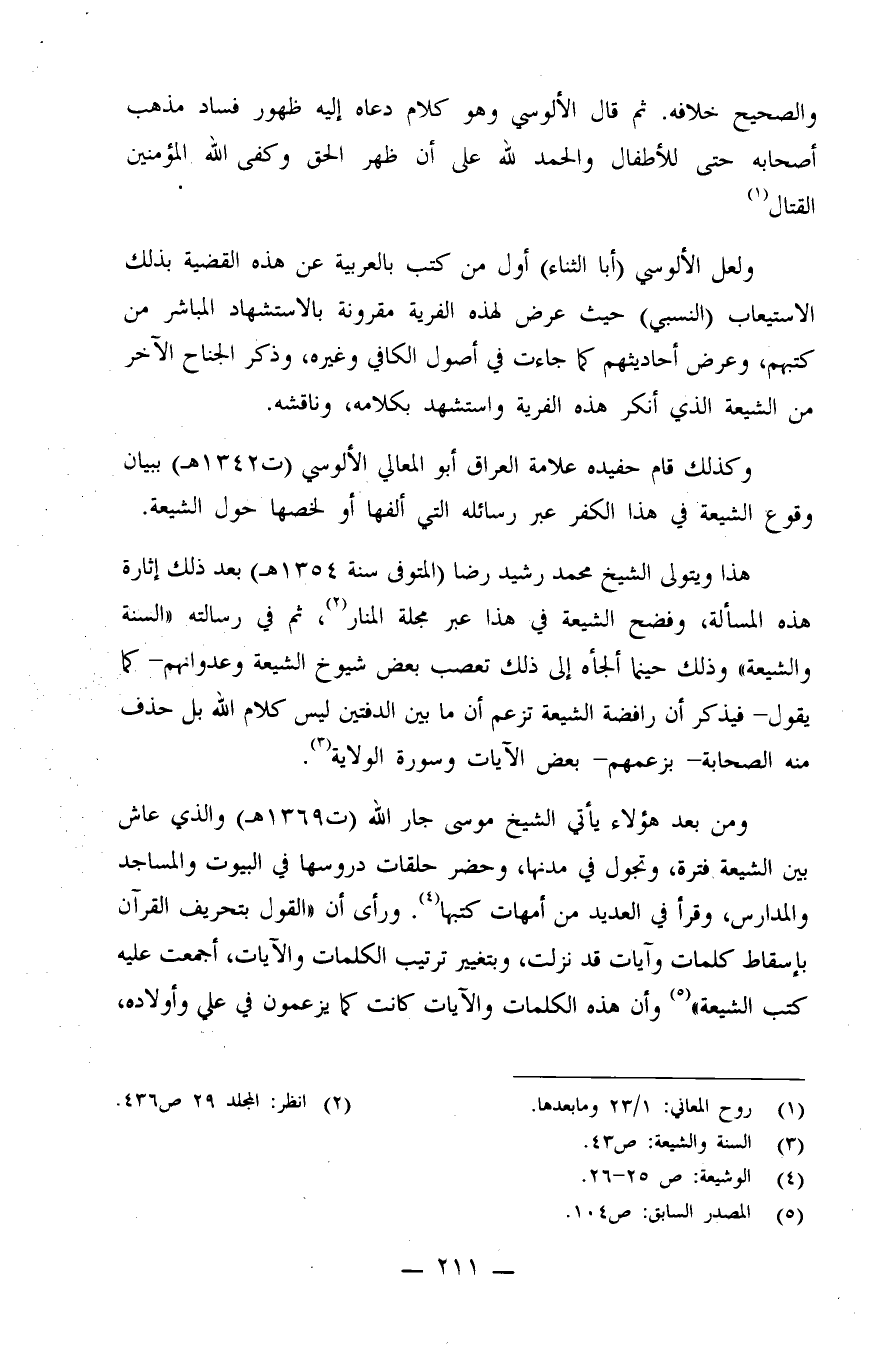 والصحيح خلافه. ثم قال الألوسي وهو كلام دعاه إليه ظهور فساد مذهب
أصحابه حتى للأطفال والحمد لله على أن ظهر الحق وكفى الله المؤمنين
القتال(١)
ولعل الألوسي (أبا الثناء) أول من كتب بالعربية عن هذه القضية بذلك
الاستيعاب (النسبي) حيث عرض لهذه الفرية مقرونة بالاستشهاد المباشر من
كتبهم، وعرض أحاديثهم كما جاءت في أصول الكافي وغيره، وذكر الجناح الآخر
من الشيعة الذي أنكر هذه الفرية واستشهد بكلامه، وناقشه.
وكذلك قام حفيده علامة العراق أبو المعالي الألوسي (ت١٣٤٢هـ) ببيان
وقوع الشيعة في هذا الكفر عبر رسائله التي ألفها أو لخصها حول الشيعة.
هذا ويتولى الشيخ محمد رشيد رضا (المتوفى سنة ١٣٥٤هـ) بعد ذلك إثارة
هذه المسألة، وفضح الشيعة في هذا عبر مجلة المنار(٢)، ثم في رسالته «السنة
والشيعة» وذلك حينما ألجأه إلى ذلك تعصب بعض شيوخ الشيعة وعدوانهم– كما
يقول– فيذكر أن رافضة الشيعة تزعم أن ما بين الدفتين ليس كلام الله بل حذف
منه الصحابة– بزعمهم– بعض الآيات وسورة الولاية(٣).
ومن بعد هؤلاء يأتي الشيخ موسى جار الله (ت١٣٦٩هـ) والذي عاش
بين الشيعة فترة، وتجول في مدنها، وحضر حلقات دروسها في البيوت والمساجد
والمدارس، وقرأ في العديد من أمهات كتبها(٤). ورأى أن «القول بتحريف القرآن
بإسقاط كلمات وآيات قد نزلت، وبتغيير ترتيب الكلمات والآيات، أجمعت عليه
كتب الشيعة»(٥) وأن هذه الكلمات والآيات كانت كما يزعمون في علي وأولاده،
(١) روح المعاني: ٢٣/١ ومابعدها. (٢) انظر: المجلد ٢٩ ص٤٣٦.
(٣) السنة والشيعة: ص٤٣.
(٤) الوشيعة: ص ٢٥–٢٦.
(٥) المصدر السابق: ص١٠٤.
— ٢١١ —